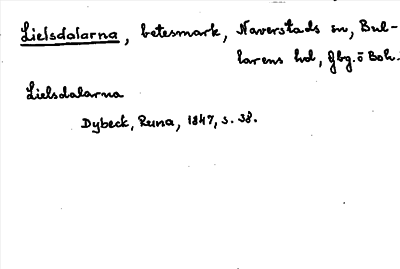 Lielsdalarna, betesmark, Naverstads sn, Bul-
larens hd, Gbg. o Boh.
Lielsdalarna
Dybeck, Runa, 1847, s. 38.